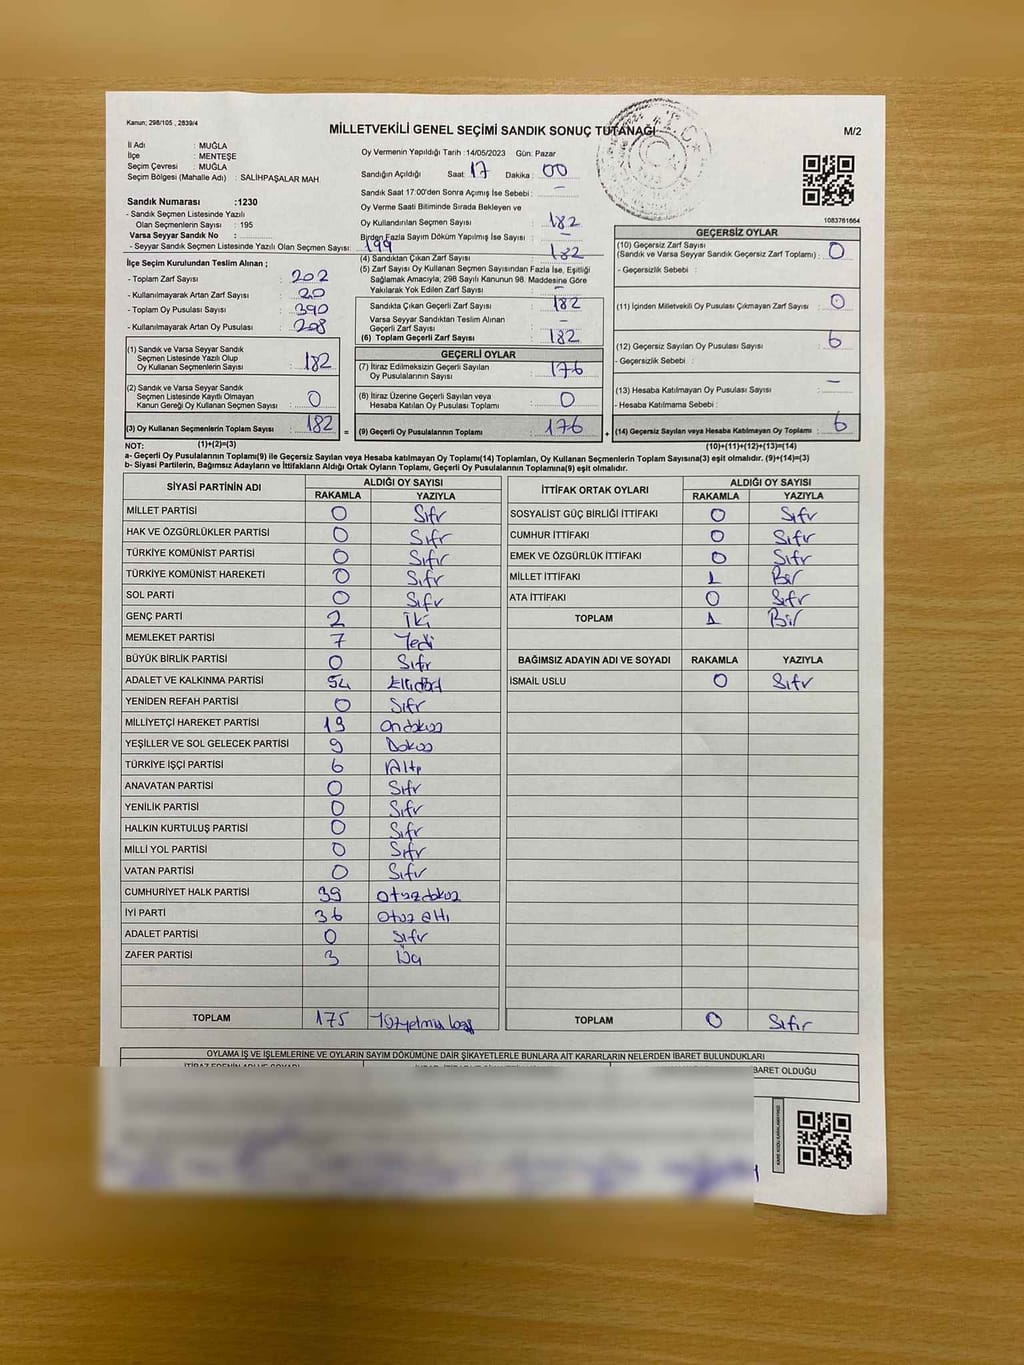 Kanun; 298/105 , 2839/4
MİLLETVEKİLİ GENEL SEÇİMİ SANDIK SONUÇ TUTANAĞI
M/2
İl Adı : MUĞLA
İlçe : MENTEŞE
Seçim Çevresi : MUĞLA
Seçim Bölgesi (Mahalle Adı) : SALİHPAŞALAR MAH.
Sandık Numarası :1230
- Sandık Seçmen Listesinde Yazılı
Olan Seçmenlerin Sayısı : 195
Varsa Seyyar Sandık No :
- Seyyar Sandık Seçmen Listesinde Yazılı Olan Seçmen Sayısı:
Oy Vermenin Yapıldığı Tarih :14/05/2023 Gün: Pazar
Sandığın Açıldığı Saat 17 Dakika 00
Sandık Saat 17:00'den Sonra Açımış İse Sebebi : –
Oy Verme Saati Bitiminde Sırada Bekleyen ve
Oy Kullandırılan Seçmen Sayısı : 182
Birden Fazla Sayım Döküm Yapılmış İse Sayısı : –
199
(4) Sandıktan Çıkan Zarf Sayısı : 182
(5) Zarf Sayısı Oy Kullanan Seçmen Sayısından Fazla İse, Eşitliği
Sağlamak Amacıyla; 298 Sayılı Kanunun 98. Maddesine Göre
Yakılarak Yok Edilen Zarf Sayısı : –
1083761664
İlçe Seçim Kurulundan Teslim Alınan ;
- Toplam Zarf Sayısı : 202
- Kullanılmayarak Artan Zarf Sayısı : 20
- Toplam Oy Pusulası Sayısı : 390
- Kullanılmayarak Artan Oy Pusulası : 208
(1) Sandık ve Varsa Seyyar Sandık
Seçmen Listesinde Yazılı Olup
Oy Kullanan Seçmenlerin Sayısı : 182
(2) Sandık ve Varsa Seyyar Sandık
Seçmen Listesinde Kayıtlı Olmayan
Kanun Gereği Oy Kullanan Seçmen Sayısı : 0
(3) Oy Kullanan Seçmenlerin Toplam Sayısı : 182
Sandıkta Çıkan Geçerli Zarf Sayısı : 182
Varsa Seyyar Sandıktan Teslim Alınan
Geçerli Zarf Sayısı : –
(6) Toplam Geçerli Zarf Sayısı : 182
GEÇERLİ OYLAR
(7) İtiraz Edilmeksizin Geçerli Sayılan
Oy Pusulalarının Sayısı : 176
(8) İtiraz Üzerine Geçerli Sayılan veya
Hesaba Katılan Oy Pusulası Toplamı : 0
= (9) Geçerli Oy Pusulalarının Toplamı : 176
GEÇERSİZ OYLAR
(10) Geçersiz Zarf Sayısı
(Sandık ve Varsa Seyyar Sandık Geçersiz Zarf Toplamı) : 0
- Geçersizlik Sebebi :
(11) İçinden Milletvekili Oy Pusulası Çıkmayan Zarf Sayısı : 0
(12) Geçersiz Sayılan Oy Pusulası Sayısı : 6
- Geçersizlik Sebebi :
(13) Hesaba Katılmayan Oy Pusulası Sayısı : –
- Hesaba Katılmama Sebebi :
+ (14) Geçersiz Sayılan veya Hesaba Katılmayan Oy Toplamı : 6
NOT: (1)+(2)=(3) (10)+(11)+(12)+(13)=(14)
a- Geçerli Oy Pusulalarının Toplamı(9) ile Geçersiz Sayılan veya Hesaba katılmayan Oy Toplamı(14) Toplamları, Oy Kullanan Seçmenlerin Toplam Sayısına(3) eşit olmalıdır. (9)+(14)=(3)
b- Siyasi Partilerin, Bağımsız Adayların ve İttifakların Aldığı Ortak Oyların Toplamı, Geçerli Oy Pusulalarının Toplamına(9) eşit olmalıdır.
SİYASİ PARTİNİN ADI ALDIĞI OY SAYISI
RAKAMLA YAZIYLA
MİLLET PARTİSİ 0 Sıfır
HAK VE ÖZGÜRLÜKLER PARTİSİ 0 Sıfır
TÜRKİYE KOMÜNİST PARTİSİ 0 Sıfır
TÜRKİYE KOMÜNİST HAREKETİ 0 Sıfır
SOL PARTİ 0 Sıfır
GENÇ PARTİ 2 İki
MEMLEKET PARTİSİ 7 Yedi
BÜYÜK BİRLİK PARTİSİ 0 Sıfır
ADALET VE KALKINMA PARTİSİ 54 Ellidört
YENİDEN REFAH PARTİSİ 0 Sıfır
MİLLİYETÇİ HAREKET PARTİSİ 19 Ondokuz
YEŞİLLER VE SOL GELECEK PARTİSİ 9 Dokuz
TÜRKİYE İŞÇİ PARTİSİ 6 Altı
ANAVATAN PARTİSİ 0 Sıfır
YENİLİK PARTİSİ 0 Sıfır
HALKIN KURTULUŞ PARTİSİ 0 Sıfır
MİLLİ YOL PARTİSİ 0 Sıfır
VATAN PARTİSİ 0 Sıfır
CUMHURİYET HALK PARTİSİ 39 Otuzdokuz
İYİ PARTİ 36 Otuz altı
ADALET PARTİSİ 0 Sıfır
ZAFER PARTİSİ 3 Üç
TOPLAM 175 Yüzyetmiş beş
İTTİFAK ORTAK OYLARI ALDIĞI OY SAYISI
RAKAMLA YAZIYLA
SOSYALIST GÜÇ BİRLİĞİ İTTİFAKI 0 Sıfır
CUMHUR İTTİFAKI 0 Sıfır
EMEK VE ÖZGÜRLÜK İTTİFAKI 0 Sıfır
MİLLET İTTİFAKI 1 Bir
ATA İTTİFAKI 0 Sıfır
TOPLAM 1 Bir
BAĞIMSIZ ADAYIN ADI VE SOYADI RAKAMLA YAZIYLA
İSMAİL USLU 0 Sıfır
TOPLAM 0 Sıfır
OYLAMA İŞ VE İŞLEMLERİNE VE OYLARIN SAYIM DÖKÜMÜNE DAİR ŞİKAYETLERLE BUNLARA AİT KARARLARIN NELERDEN İBARET BULUNDUKLARI
İTİRAZ EDENİN ADI VE SOYADI
BARET OLDUĞU